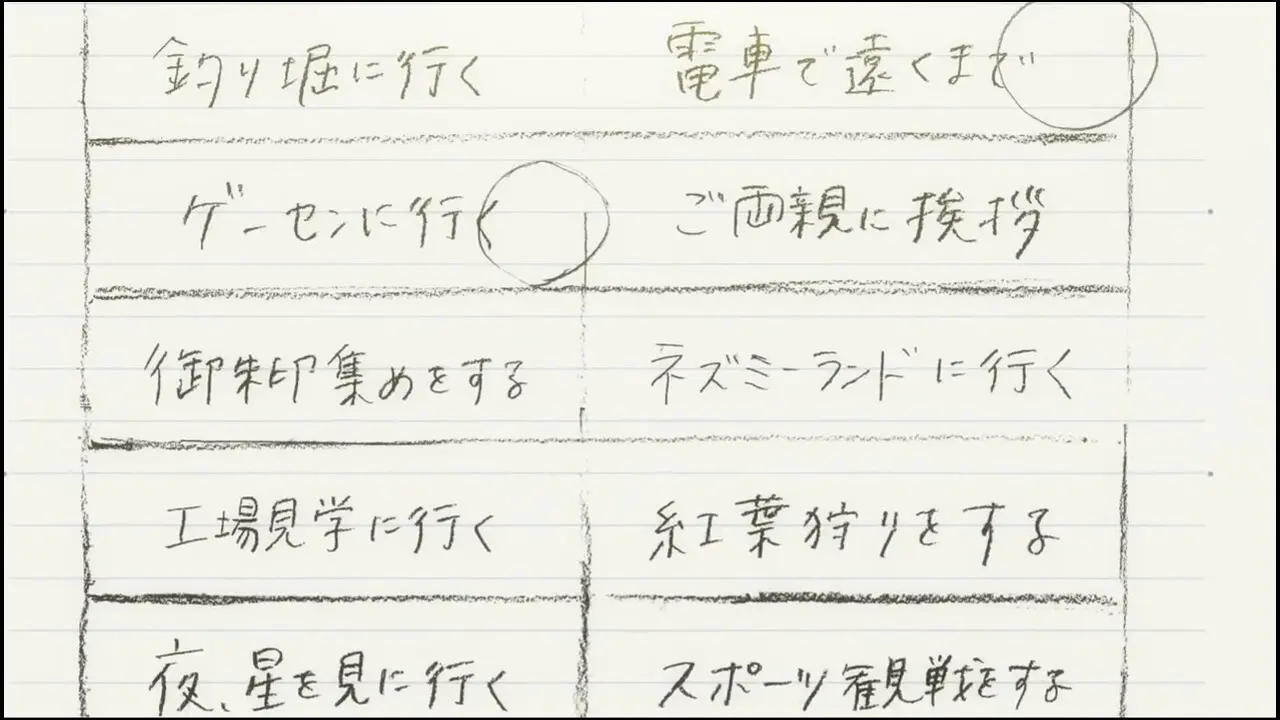 釣り堀に行く
電車で遠くまで
ゲーセンに行く
ご両親に挨拶
御朱印集めをする
ネズミーランドに行く
工場見学に行く
紅葉狩りをする
夜、星を見に行く
スポーツ観戦をする